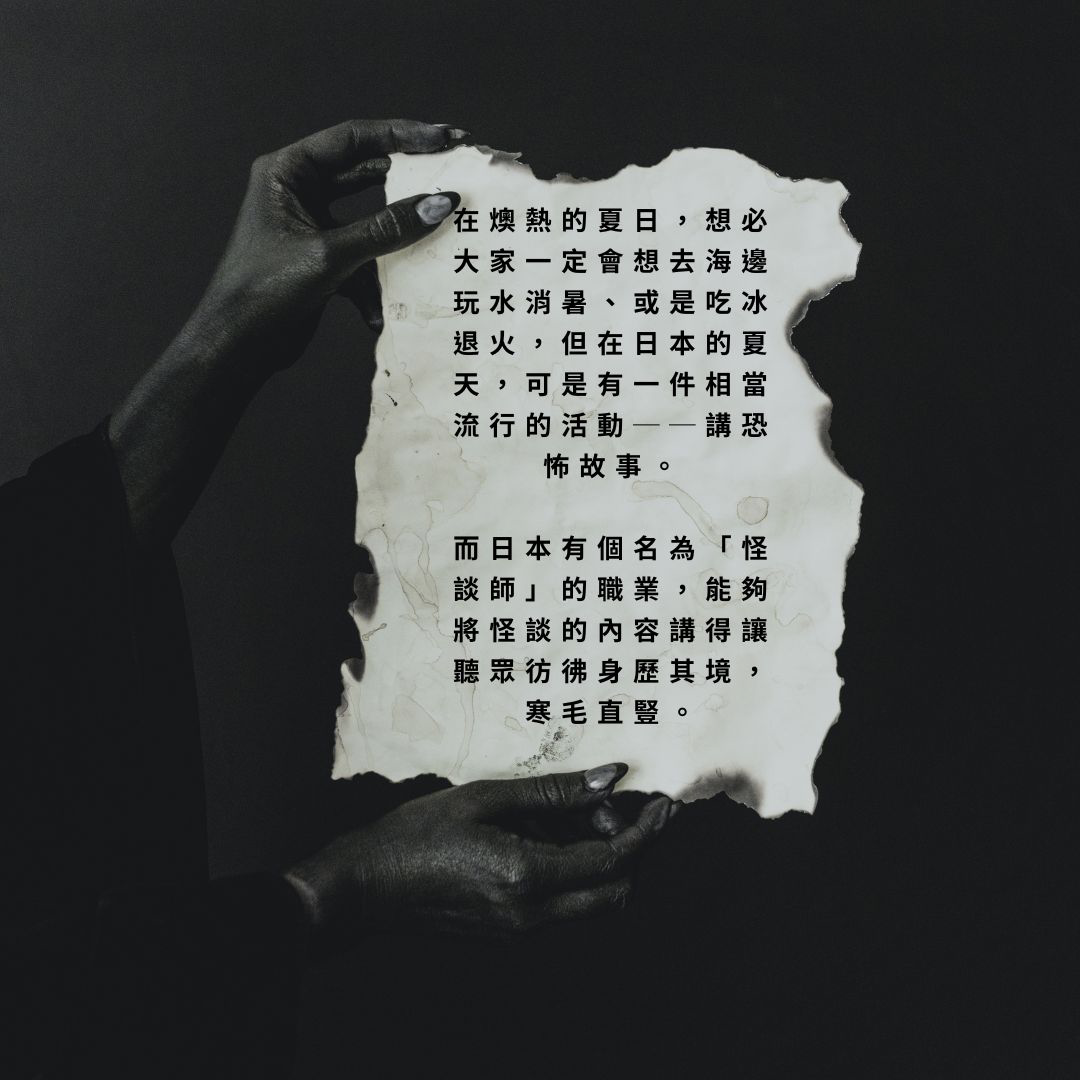 在燠熱的夏日，想必
大家一定會想去海邊
玩水消暑、或是吃冰
退火，但在日本的夏
天，可是有一件相當
流行的活動——講恐
怖故事。
而日本有個名為「怪
談師」的職業，能夠
將怪談的內容講得讓
聽眾彷彿身歷其境，
寒毛直豎。